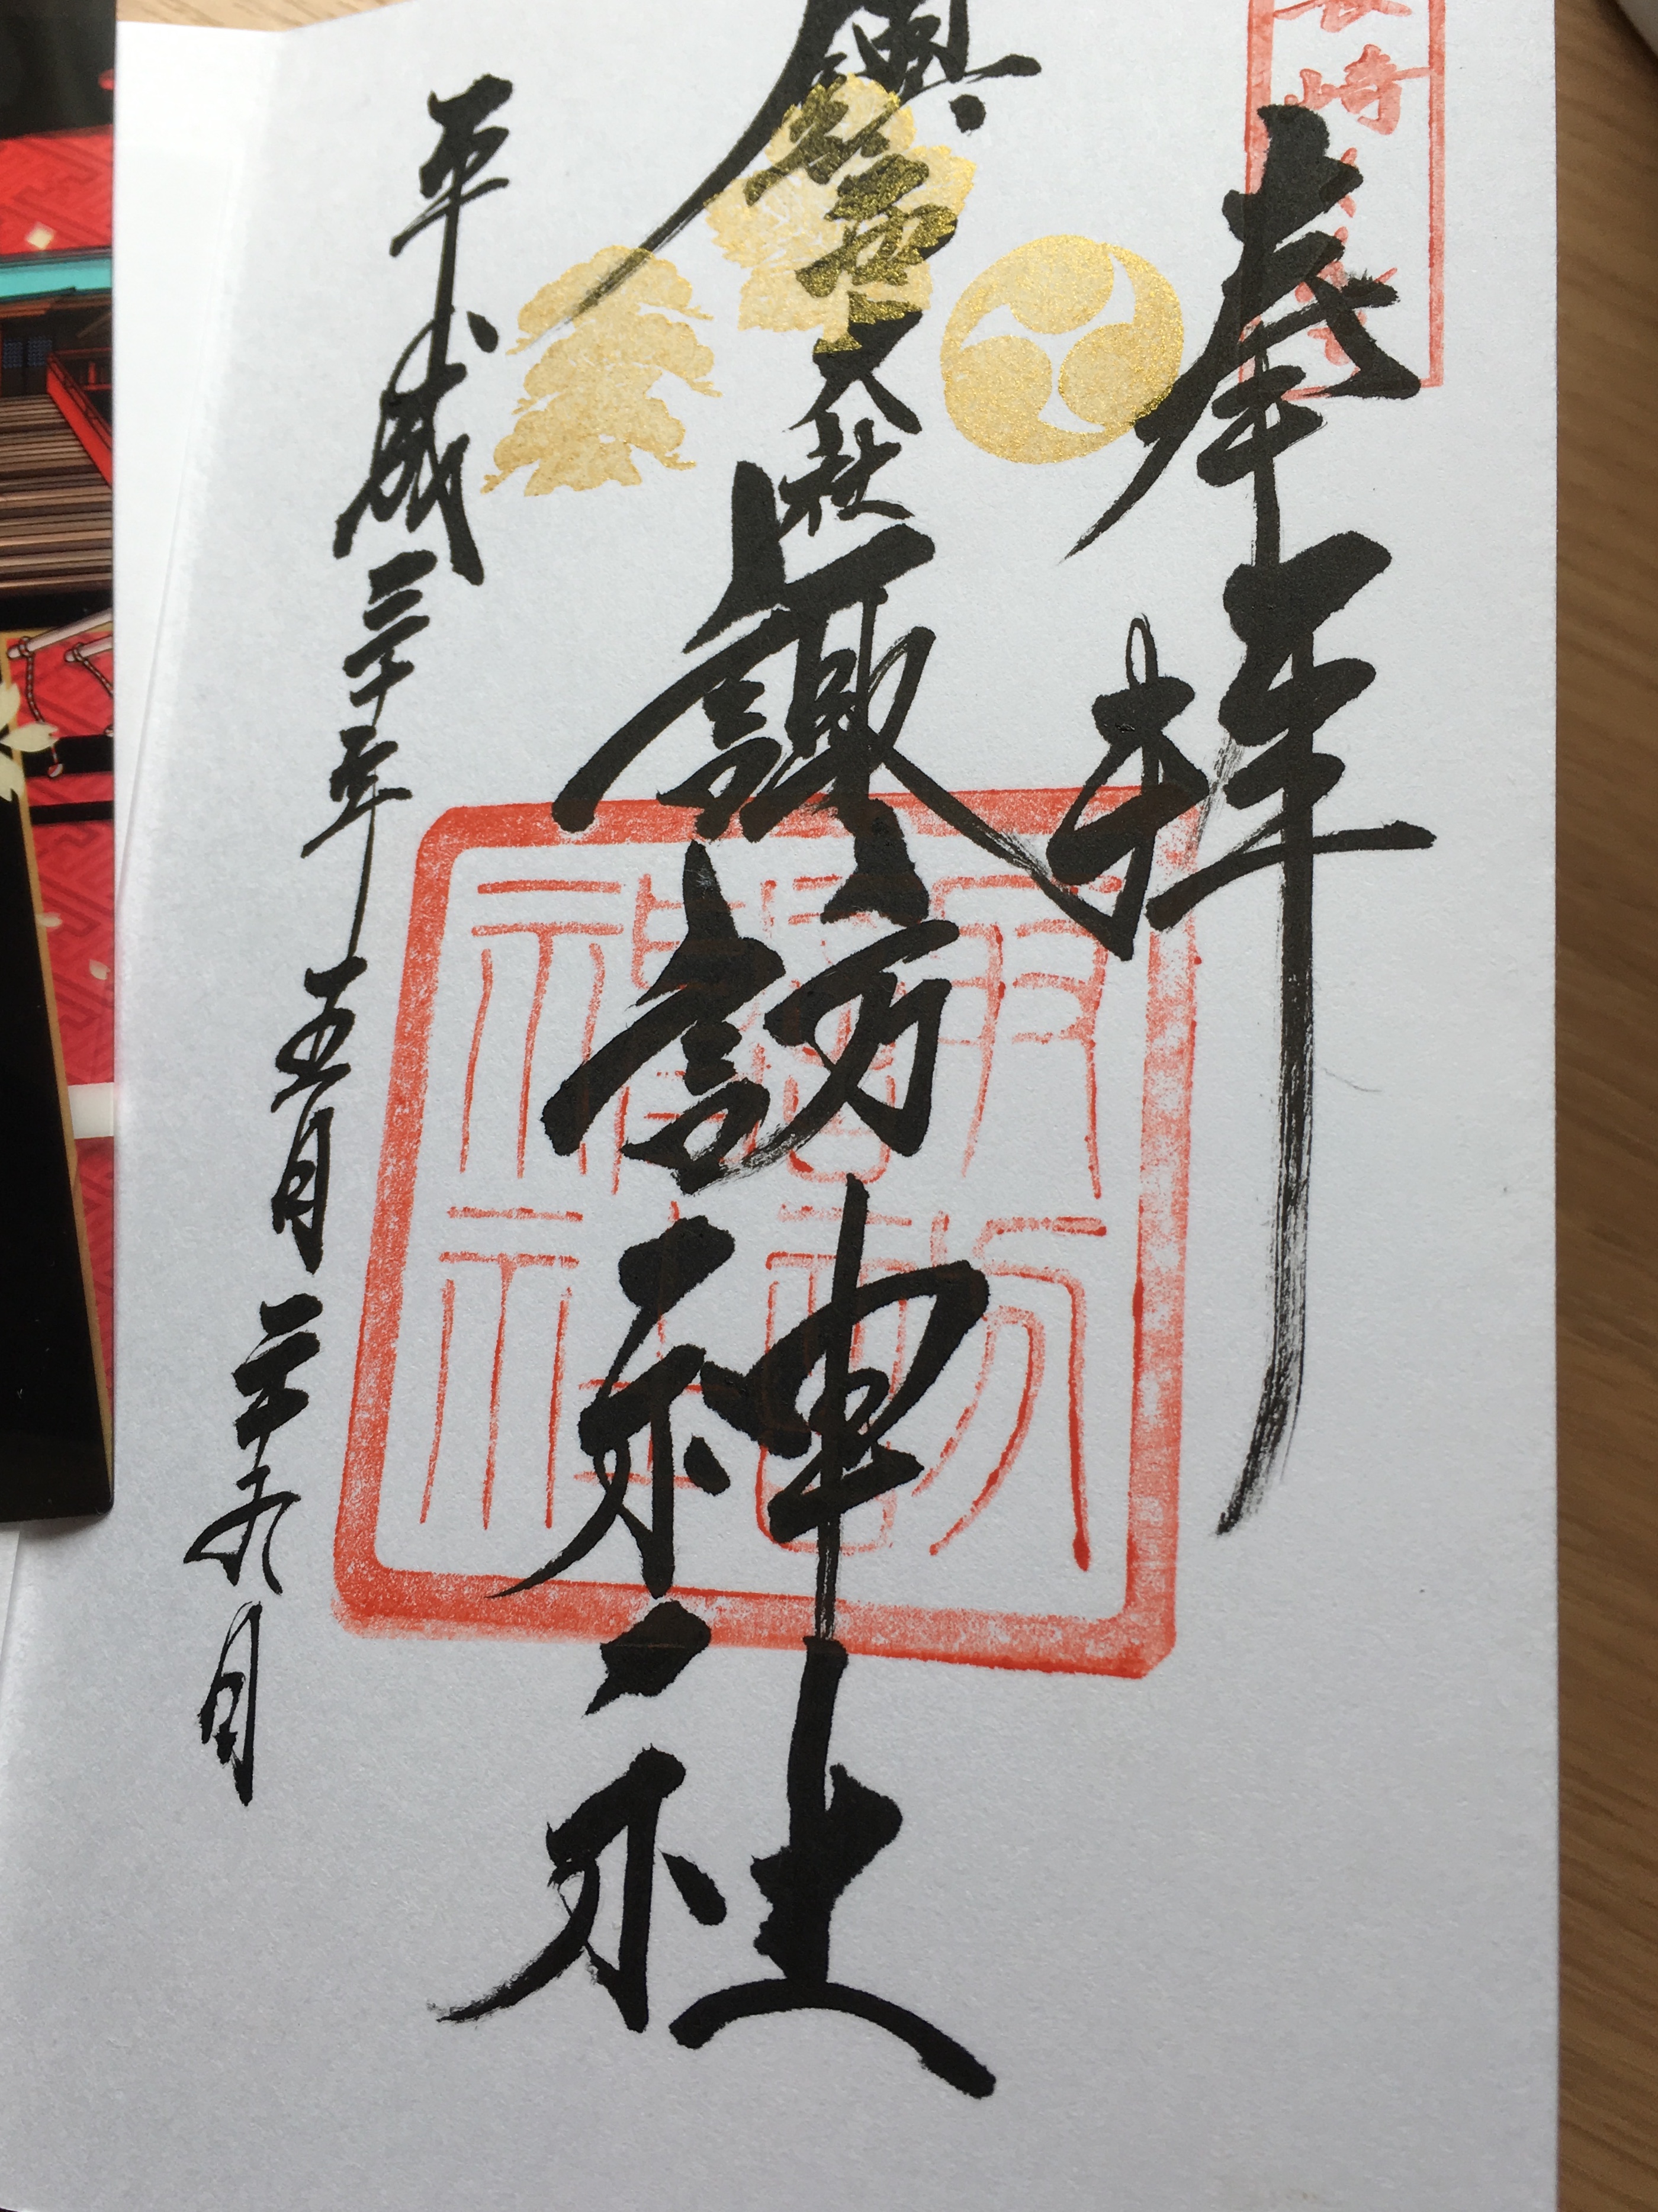 長崎
奉拝
鎮西大社
諏訪神社
諏訪
神社
平成三十年五月二十九日